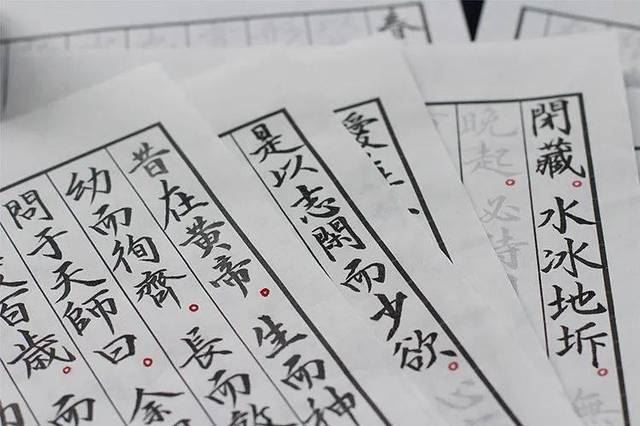 春
閉藏。水冰地坼。
晚起。必待
是以志閑而少欲。心
昔在黃帝。生而神
幼而徇齊。長而敦
問于天師曰。余
百歲。而